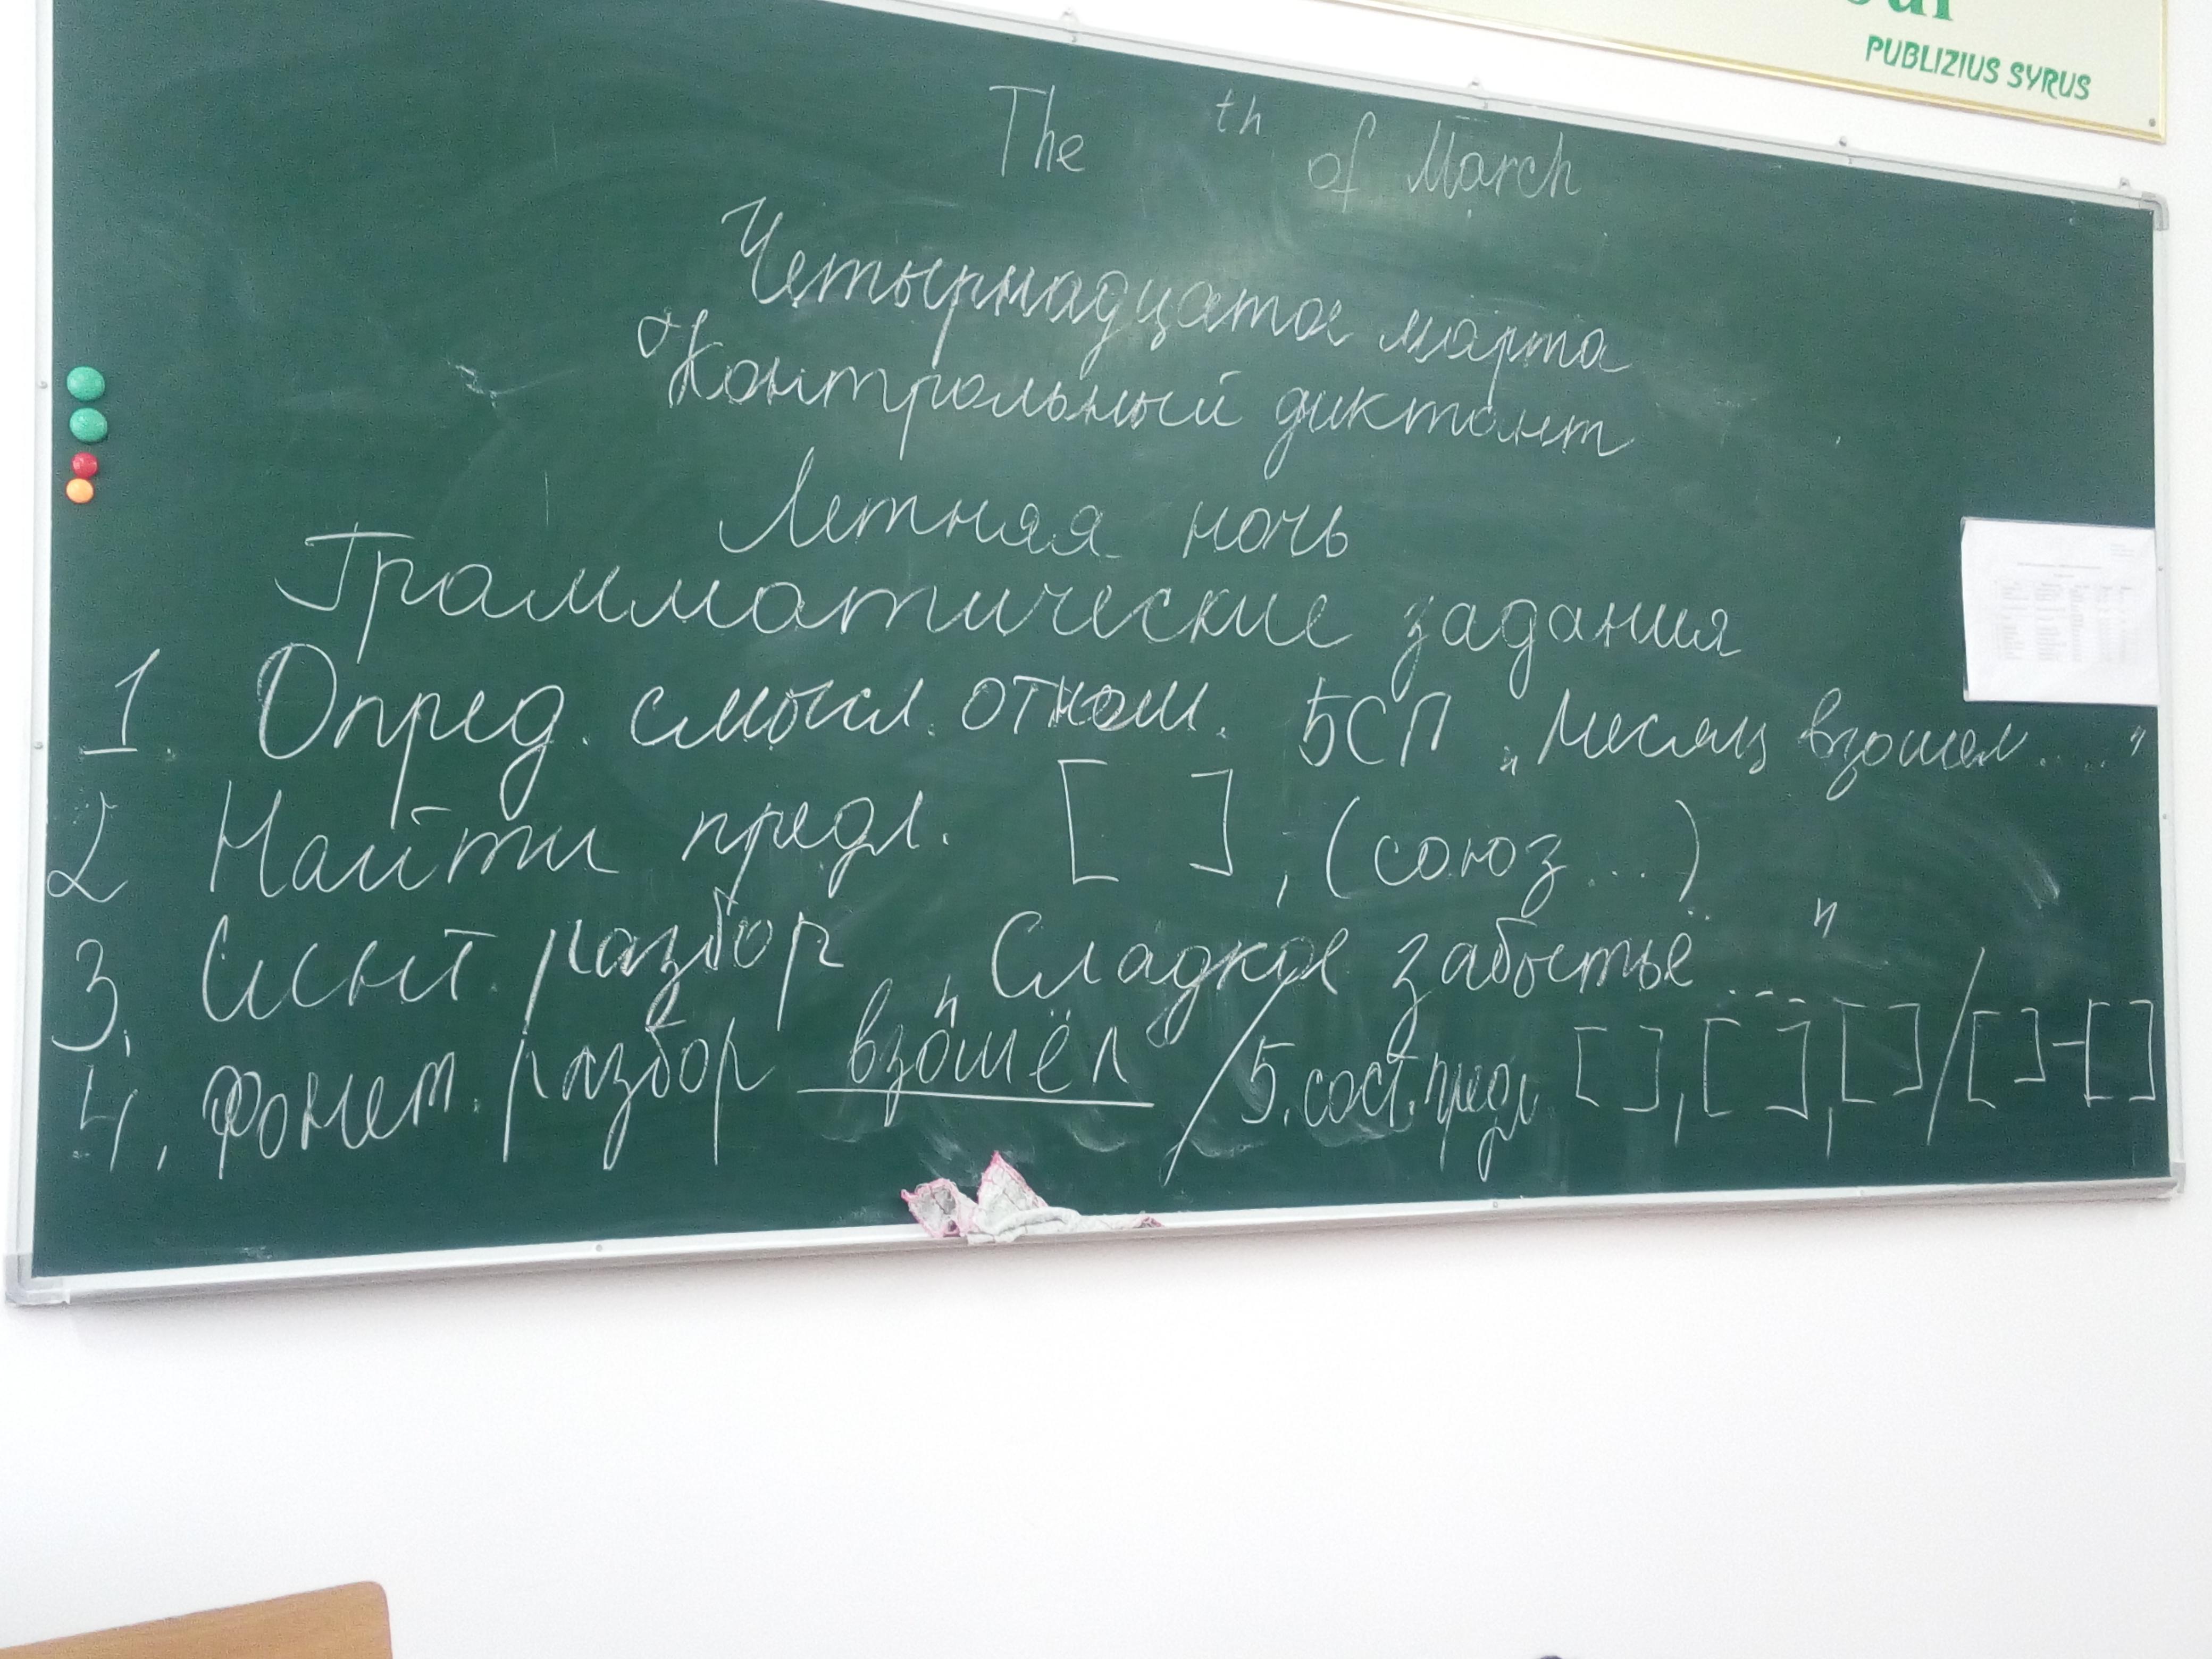 PUBLIZIUS SYRUS
The th of March
Четырнадцатое марта
Контрольный диктант
Летняя ночь
Грамматические задания
1. Опред. смысл. отнош. БСП „Месяц взошел...."
2 Найти предл. [ ], (союз...)
3. Синт. разбор „Сладкое забытьё...."
4. Фонет. разбор взошёл / 5. сост. предл [ ], [ ], [ ] / [ ] - [ ]